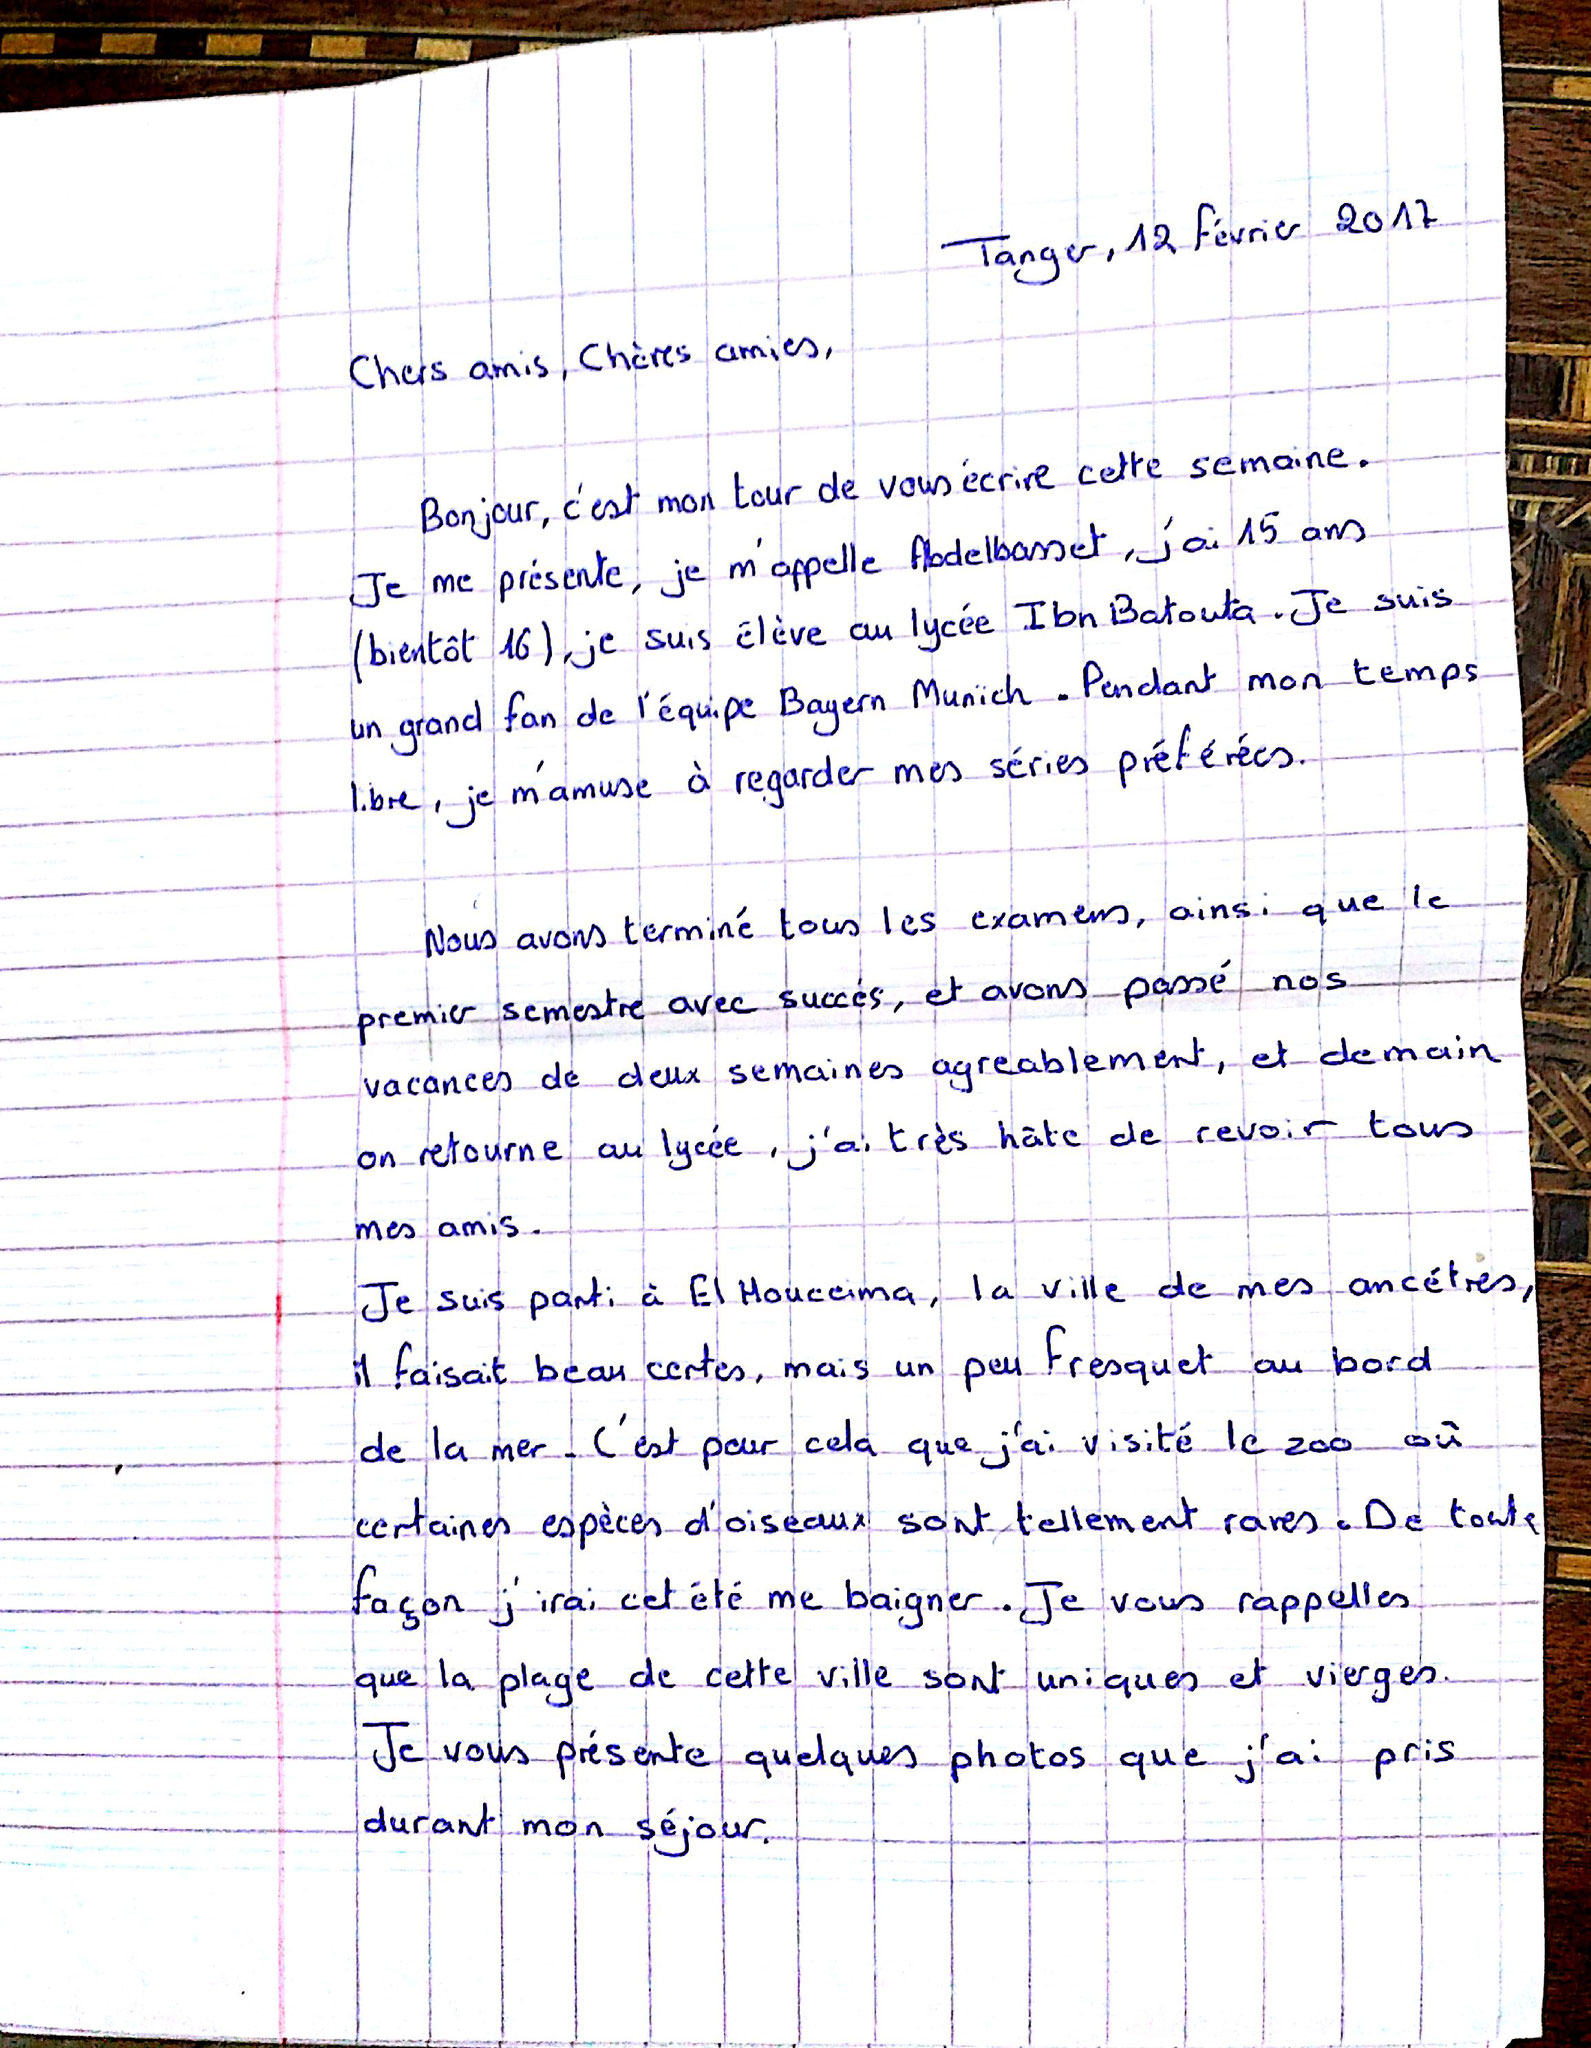 Tanger, 12 Février 2017
Chers amis, Chères amies,
Bonjour, c'est mon tour de vous écrire cette semaine.
Je me présente, je m'appelle Abdelbasset, j'ai 15 ans
(bientôt 16), je suis élève au lycée Ibn Batouta. Je suis
un grand fan de l'équipe Bayern Munich. Pendant mon temps
libre, je m'amuse à regarder mes séries préférées.
Nous avons terminé tous les examens, ainsi que le
premier semestre avec succés, et avons passé nos
vacances de deux semaines agreablement, et demain
on retourne au lycée, j'ai très hâte de revoir tous
mes amis.
Je suis parti à El Houceima, la ville de mes ancétres,
il faisait beau certes, mais un peu fresquet au bord
de la mer. C'est pour cela que j'ai visité le zoo où
certaines espèces d'oiseaux sont tellement rares. De toute
façon j'irai cet été me baigner. Je vous rappelles
que la plage de cette ville sont uniques et vierges.
Je vous présente quelques photos que j'ai pris
durant mon séjour.